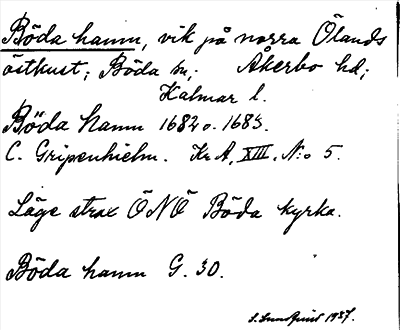 Böda hamn, vik på norra Ölands
östkust; Böda sn; Åkerbo hd;
Kalmar l.
Böda Hamn 1682 o. 1683.
C. Gripenhielm. Kr A, XIII, N:o 5.
Läge strax ÖNÖ Böda kyrka.
Böda hamn G. 30.
S. Lundquist 1937.